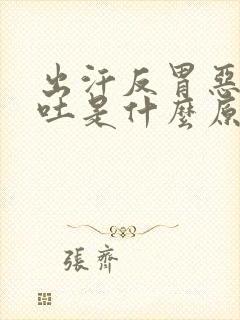 出汗反胃惡
吐是什麼原
張齊